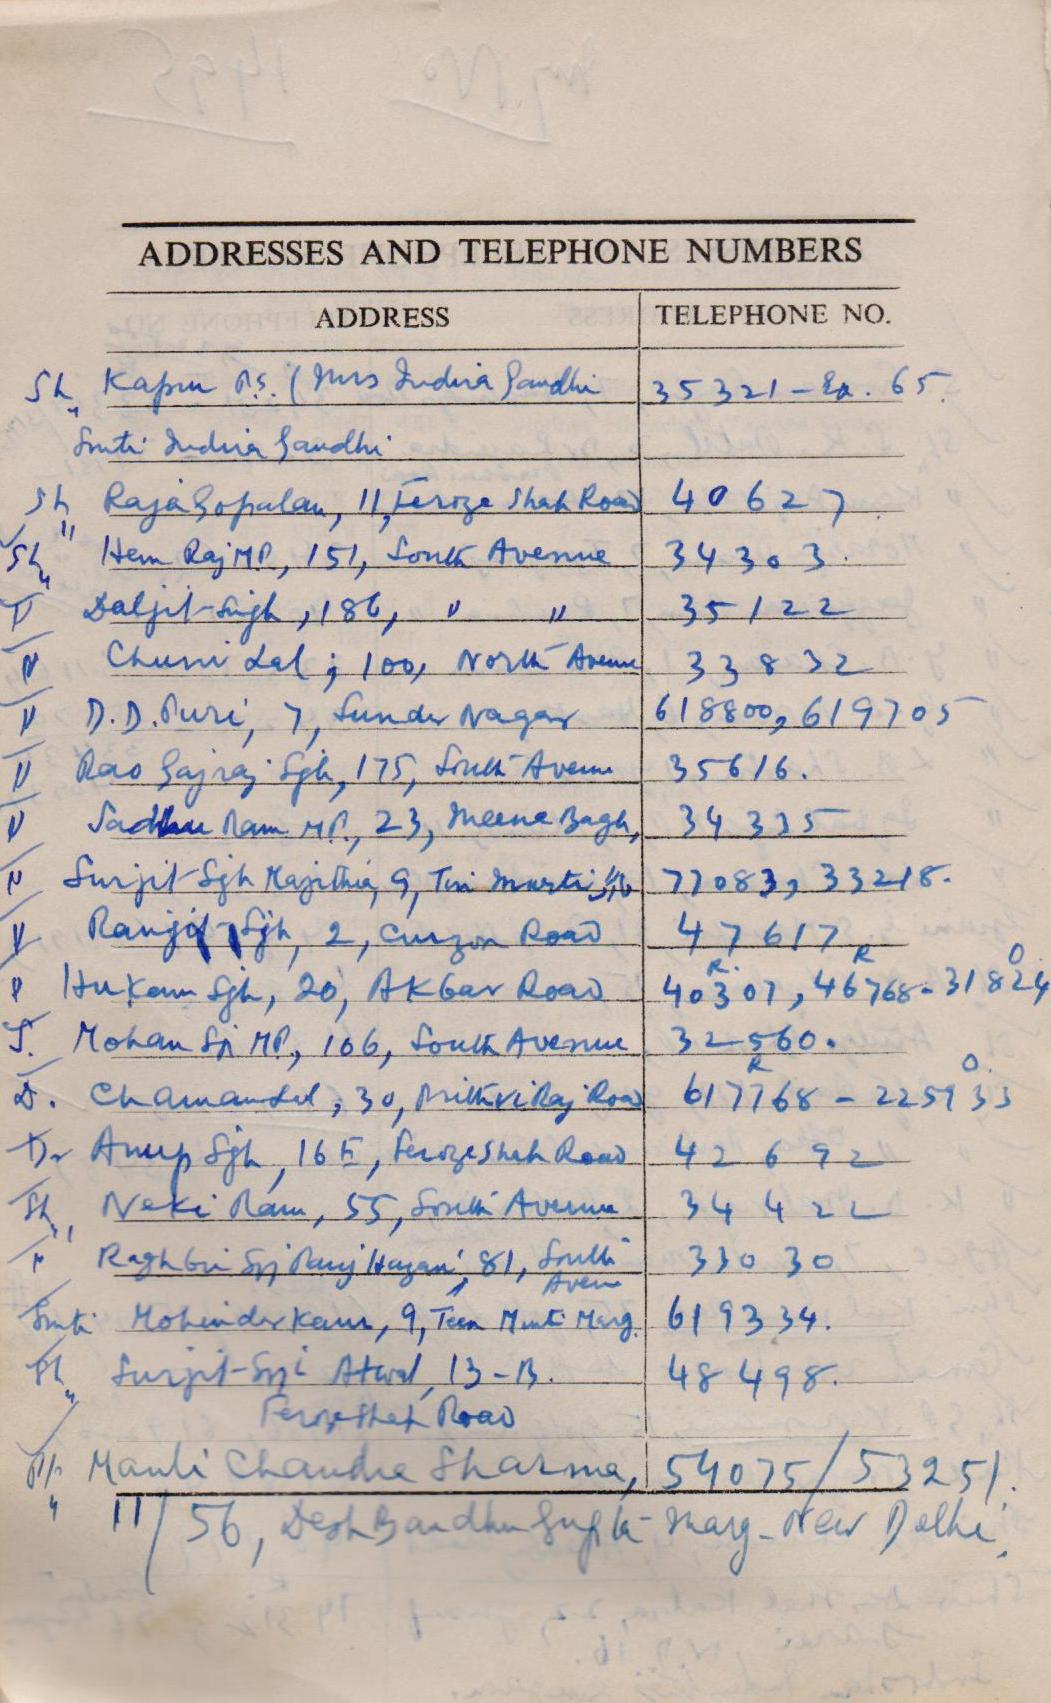 ADDRESSES AND TELEPHONE NUMBERS
ADDRESS TELEPHONE NO.
Sh Kapur P.S. (Mrs Indira Gandhi 35321 - Ex. 65.
Smti Indira Gandhi
Sh Raja Gopalan, 11, Feroze Shah Road 40627
Sh Hem Raj MP, 151, South Avenue 34303.
" Daljit Singh, 186, " " 35122
" Chuni Lal; 100, North Avenue 33832
" D.D. Puri, 7, Sunder Nagar 618800, 619705
" Rao Gajraj Sgh, 175, South Avenue 35616.
" Sadhu Ram MP., 23, Meena Bagh, 34335
" Surjit Sgh Majithia, 9, Tin Murti 77083, 33218.
" Ranjit Sgh, 2, Curzon Road 47617
" Hukam Sgh, 20, Akbar Road 40307 R., 46768 R - 31824 O.
S. Mohan Sgi MP., 106, South Avenue 32560.
D. Chaman Lal; 30, Prithvi Raj Road 617768 R - 225933 O.
Dr Anup Sgh, 16 E, Feroze Shah Road 42692
Sh Neki Ram, 55, South Avenue 34422
" Raghbir Sgi Panj Hazari, 81, South Avenue 33030
Smti Mohinder Kaur, 9, Teen Murti Marg. 619334.
Sh Surjit Sgi Atwal, 13-B. 48498.
Feroz Shah Road
Sh Mauli Chandra Sharma, 54075/53251.
11/56, Desh Bandhu Gupta Marg - New Delhi.